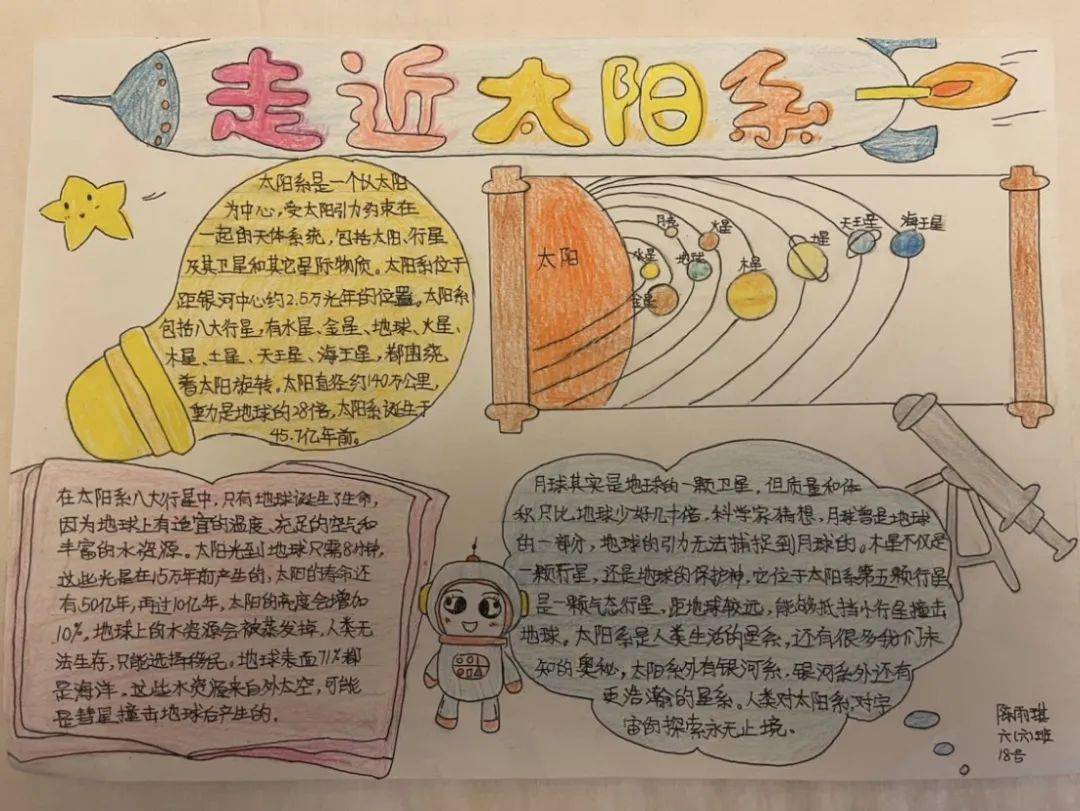 走近太阳系
太阳系是一个以太阳
为中心，受太阳引力约束在
一起的天体系统，包括太阳、行星
及其卫星和其它星际物质。太阳系位于
距银河中心约2.5万光年的位置。太阳系
包括八大行星，有水星、金星、地球、火星、
木星、土星、天王星、海王星，都围绕
着太阳旋转。太阳直径约140万公里，
重力是地球的28倍，太阳系诞生于
45.7亿年前。
太阳
水星
金星
月亮
地球
火星
木星
土星
天王星
海王星
在太阳系八大行星中，只有地球诞生了生命，
因为地球上有适宜的温度、充足的空气和
丰富的水资源。太阳光到地球只需8分钟，
这些光是在15万年前产生的，太阳的寿命还
有50亿年，再过10亿年，太阳的亮度会增加
10%。地球上的水资源会被蒸发掉，人类无
法生存，只能选择移民。地球表面71%都
是海洋。这些水资源来自外太空，可能
是彗星撞击地球后产生的。
月球其实是地球的一颗卫星，但质量和体
积只比地球少好几十倍，科学家猜想，月球曾是地球
的一部分，地球的引力无法捕捉到月球的。木星不仅是
一颗行星，还是地球的保护神，它位于太阳系第五颗行星
是一颗气态行星，距地球较远，能够抵挡小行星撞击
地球。太阳系是人类生活的星系，还有很多我们未
知的奥秘，太阳系外有银河系，银河系外还有
更浩瀚的星系。人类对太阳系，对宇
宙的探索永无止境。
陈雨琪
六(六)班
18号